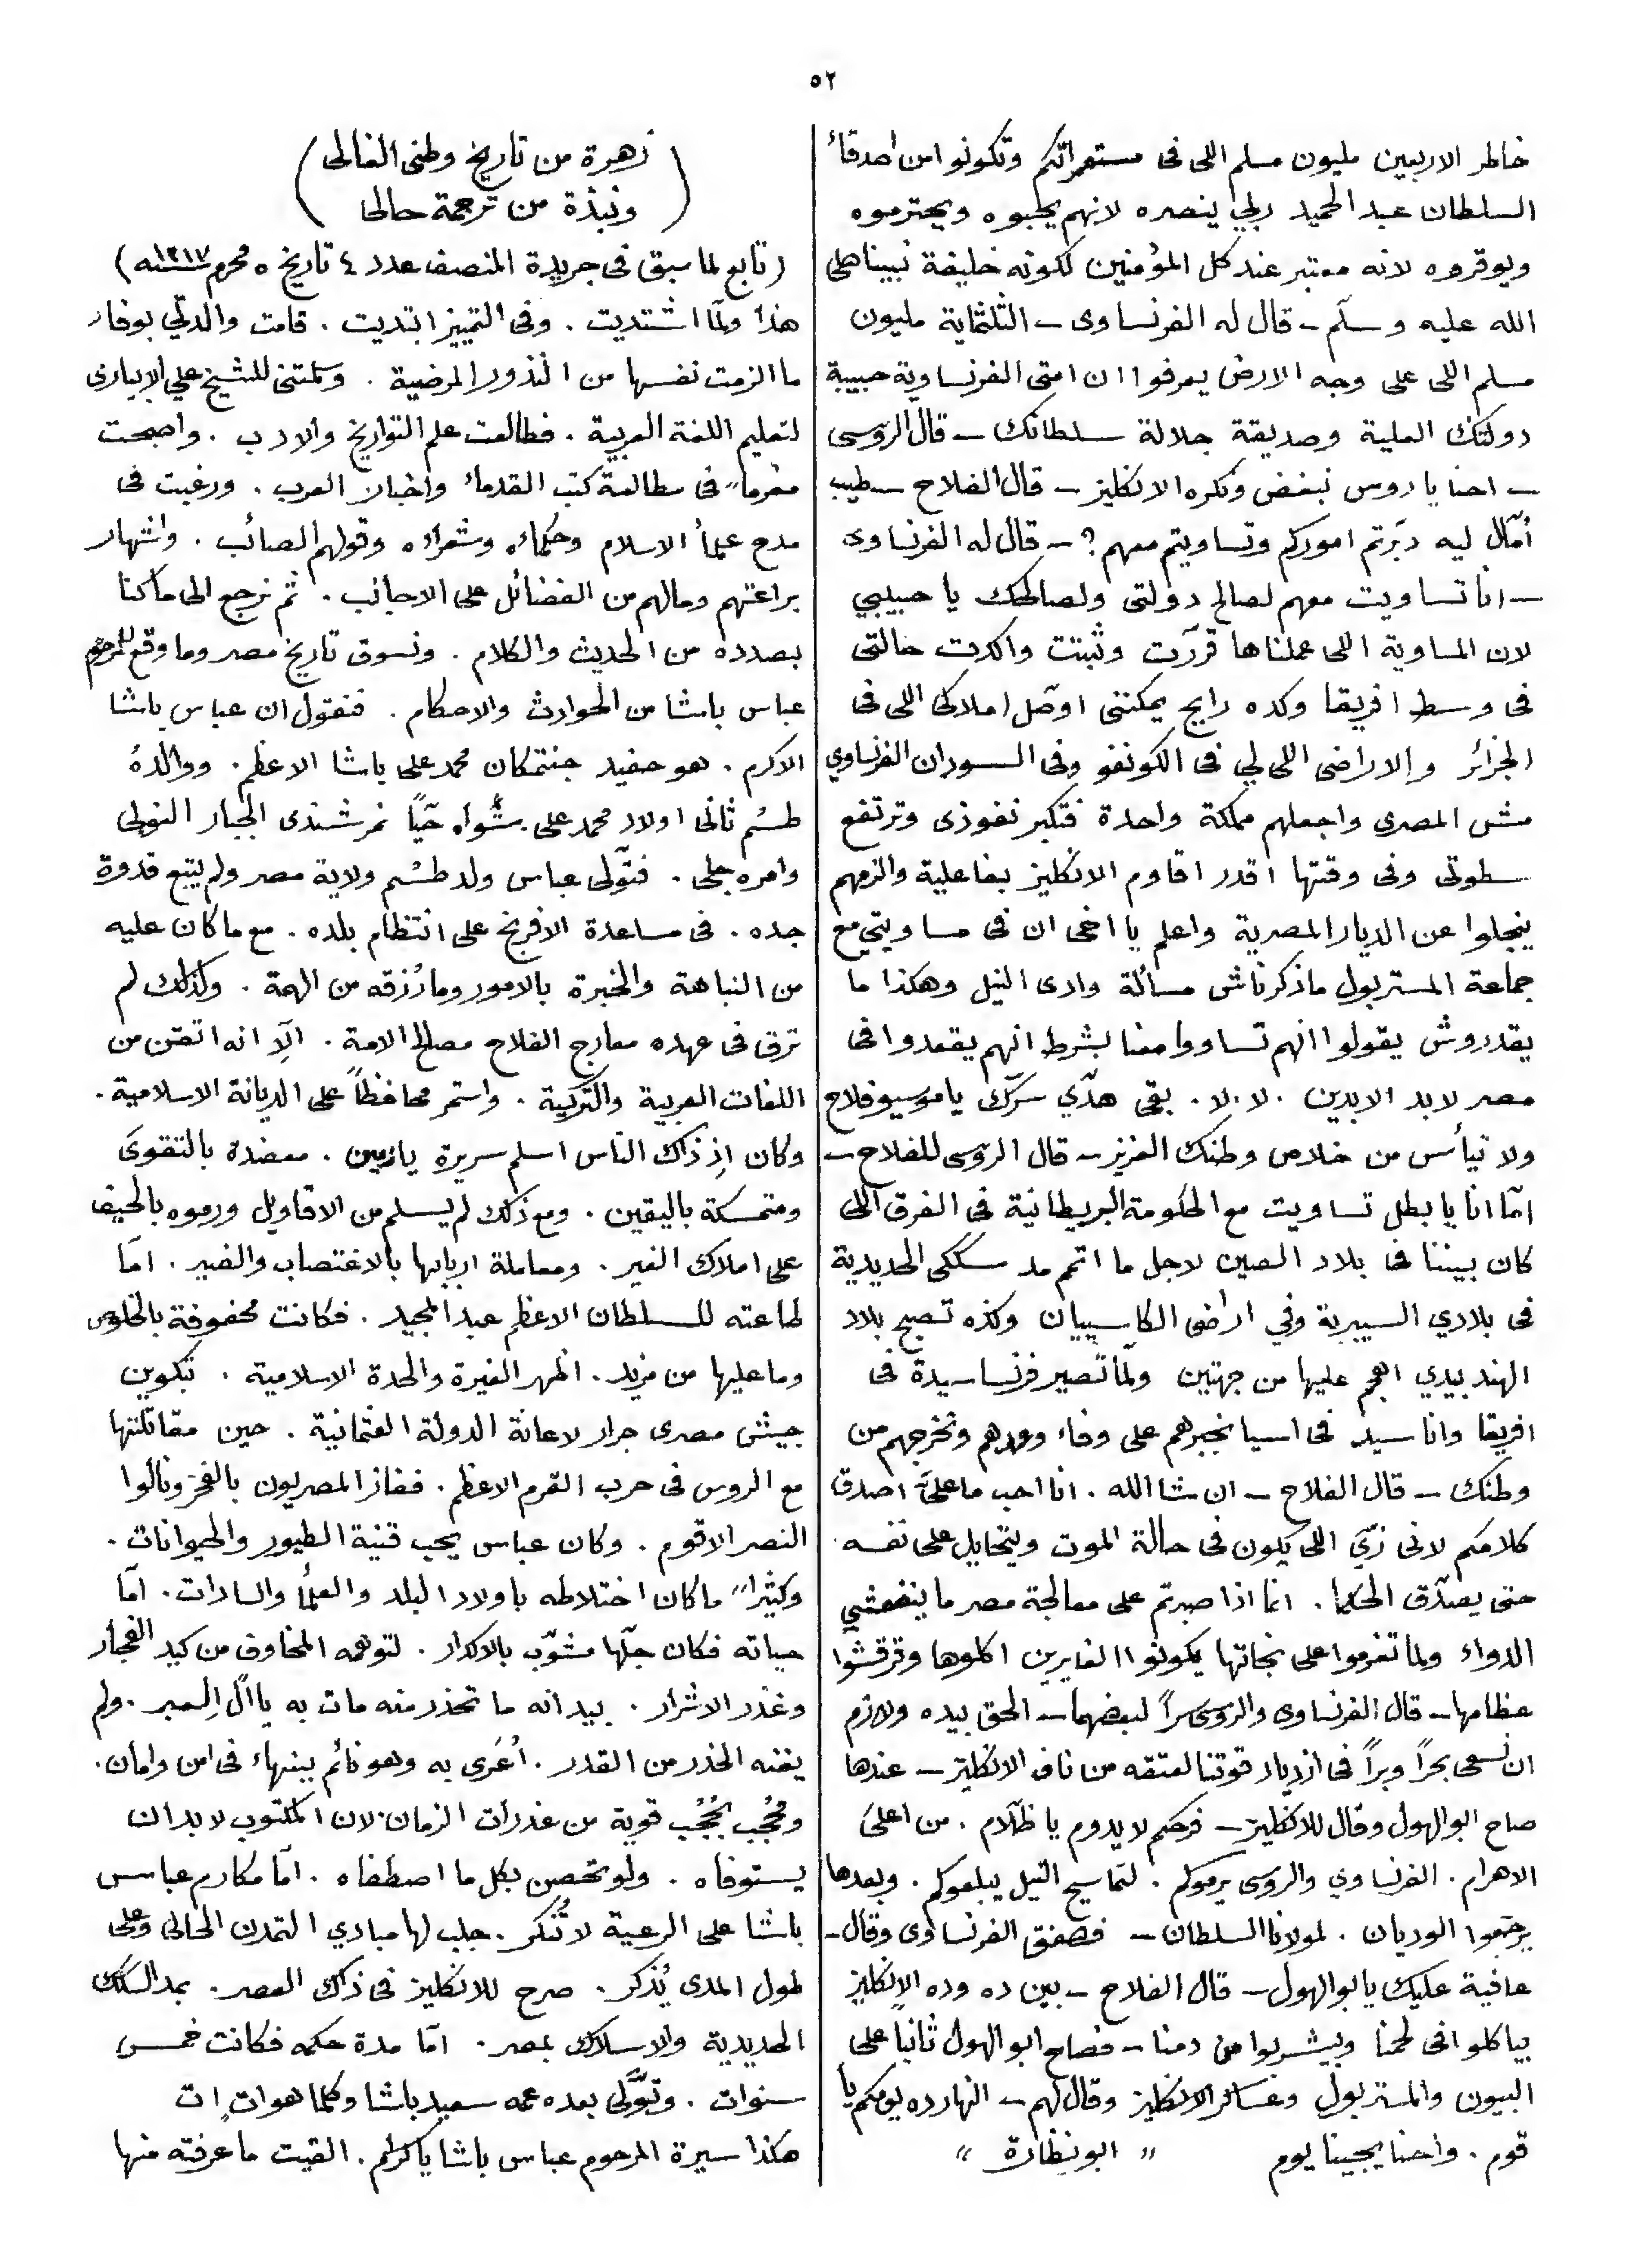 ٥٢
خاطر الاربعين مليون مسلم اللى فى مستعمراتكم وتكونوا من اصدقاء
السلطان عبد الحميد ربى ينصره لانهم يحبوه ويحترموه
ويوقروه لانه معتبر عند كل المؤمنين لكونه خليفة نبينا صلى
الله عليه وسلّم ـ قال له الفرنساوى ـ الثلثماية مليون
مسلم اللى على وجه الارض يعرفوا ان امتى الفرنساوية حبيبة
دولتك العلية وصديقة جلالة سلطانك ـ قال الروسى
ـ احنا يا روس نبغض ونكره الانكليز ـ قال الفلاح ـ طيب
أمّال ليه دبّرتم اموركم وتساويتم معهم؟ ـ قال له الفرنساوى
ـ انا تساويت معهم لصالح دولتى ولصالحك يا حبيبي
لان المساوية اللى عملناها قررّت وثبتت واكدت حالتى
فى وسط افريقا وكده رايح يمكننى اوصّل املاكى اللى فى
الجزائر والاراضى اللى لي فى الكونغو وفى السودان الفرنساوي
مش المصرى واجعلهم مملكة واحدة فتكبر نفوذى وترتفع
سطوتى وفى وقتها اقدر اقاوم الانكليز بفاعلية والزمهم
ينجلوا عن الديار المصرية واعلم يا اخى ان فى مساويتي مع
جماعة المستر بول ماذكرناش مسألة وادى النيل وهكذا ما
يقدروش يقولوا انهم تساووا معنا بشرط انهم يقعدوا فى
مصر لابد الابدين . لا . لا . بقى هدّي سرّك يا موسيو فلاح
ولا تيأس من خلاص وطنك العزيز ـ قال الروسى للفلاح ـ
امّا انا يا بطل تساويت مع الحكومة البريطانية فى الفرق اللى
كان بيننا فى بلاد الصين لاجل ما اتمم مد سككى الحديدية
فى بلادي السيبرية وفي اراضى الكاسبيان وكده تصبح بلاد
الهند بيدي اهجم عليها من جهتين ولمّا تصير فرنسا سيدة فى
افريقا وانا سيد فى اسيا نجبرهم على وفاء وعدهم ونخرجهم من
وطنك ـ قال الفلاح ـ ان شا الله . انا احب ما علىّ اصدق
كلامكم لانى زىّ اللى يكون فى حالة الموت ويتحايل على نفسه
حتى يصدّق الحكما . انما اذا صبرتم على معالجة مصر ما ينفعشي
الدواء ولما تعزموا على نجاتها يكونوا الغايرين اكلوها وقرقشوا
عظامها ـ قال الفرنساوى والروسى سراً لبعضهما ـ الحق بيده ولازم
ان نسعى بحراً وبراً فى ازدياد قوتنا لعتقه من ناف الانكليز ـ عندها
صاح ابو الهول وقال للانكليز ـ فرحكم لا يدوم يا ظلّام . من اعلى
الاهرام . الفرنساوي والروسى يرموكم . لتماسيح النيل يبلعوكم . وبعدها
يرجّعوا الوديان . لمولانا السلطان ـ فصفق الفرنساوى وقال ـ
عافية عليك يا ابو الهول ـ قال الفلاح ـ بين ده وده الانكليز
بياكلوا فى لحمنا وبيشربوا من دمنا ـ فصاح ابو الهول ثانياً على
البيون والمستر بول وعساكر الانكليز وقال لهم ـ النهار ده يومكم يا
قوم . واحنا يجينا يوم " ابو نظارة "
(زهرة من تاريخ وطنى الغالى)
(ونبذة من ترجمة حالى)
(تابع لما سبق فى جريدة المنصف عدد ٤ تاريخ ٥ محرم سنة ١٣١٧)
هذا ولمّا اشتديت . وفى التمييز ابتديت . قامت والدتي بوفاء
ما الزمت نفسها من النذور المرضية . وسلمتنى للشيخ علي الابيارى
لتعليم اللغة العربية . فطالعت علم التواريخ والادب . واصبحت
مغرماً فى مطالعة كتب القدماء واخبار العرب . ورغبت فى
مدح علمأ الاسلام وحكماءه وشعراءه وقولهم الصائب . واشهار
براعتهم ومالهم من الفضائل على الاجانب . ثم نرجع الى ما كنا
بصدده من الحديث والكلام . ونسوق تاريخ مصر وما وقع للمرحوم
عباس باشا من الحوادث والاحكام . فنقول ان عباس باشا
الاكرم . هو حفيد جنتمكان محمد على باشا الاعظم . ووالدهُ
طسُم ثانى اولاد محمد على
وامره جلى . فتولّى عباس ولد طسُم ولاية مصر ولم يتبع قدوة
جده . فى مساعدة الافرنج على انتظام بلده . مع ما كان عليه
من النباهة والخبرة بالامور وما رُزقه من الهمة . ولذلك لم
ترق فى عهده معارج الفلاح مصالح الامة . الّا انه اتقن من
اللغات العربية والتركية . واستمر محافظاً على الديانة الاسلامية .
وكان إذ ذاك الناس اسلم سريرة يازين . معضدة بالتقوى
ومتمسكة باليقين . ومع ذلك لم يسلم من الاقاويل ورموه بالحيف
على املاك الغير . ومعاملة اربابها بالاغتصاب والضير . امّا
طاعته للسلطان الاعظم عبد المجيد . فكانت محفوفة بالخلوص
وما عليها من مزيد . اظهر الغيرة والحدة الاسلامية . بتكوين
جيش مصرى جرار لاعانة الدولة العثمانية . حين مقاتلتها
مع الروس فى حرب القرم الاعظم . ففاز المصريون بالفخر ونالوا
النصر الاقوم . وكان عباس يحب قنية الطيور والحيوانات .
وكثيراً ما كان اختلاطه باولاد البلد والعلمأ والسادات . امّا
حياته فكان جلّها مشوّب بالاكدار . لتوهمه المخاوف من كيد الفجار
وغدر الاشرار . بيد انه ما تحذر منه مات به يا اُلّ السمير . ولم
يغنه الحذر من القدر . اُغرى به وهو نائم ببنهاء فى امن وامان .
وحُجب بحُجُب قوية من غدرات الزمان . لان المكتوب لابد ان
يستوفاه . ولو تحصن بكل ما اصطفاه . امّا مكارم عباس
باشا على الرعية لا تُنكر . جلب لها مبادي التمدن الحالى وعلى
طول المدى يُذكر . صرح للانكليز فى ذاك العصر . بمد السكك
الحديدية والاسلاك بمصر . امّا مدة حكمه فكانت خمس
سنوات . وتولّى بعده عمه سعيد باشا وكلما هو اتٍ ات
هكذا سيرة المرحوم عباس باشا يا كرام . القيت ما عرفته منها